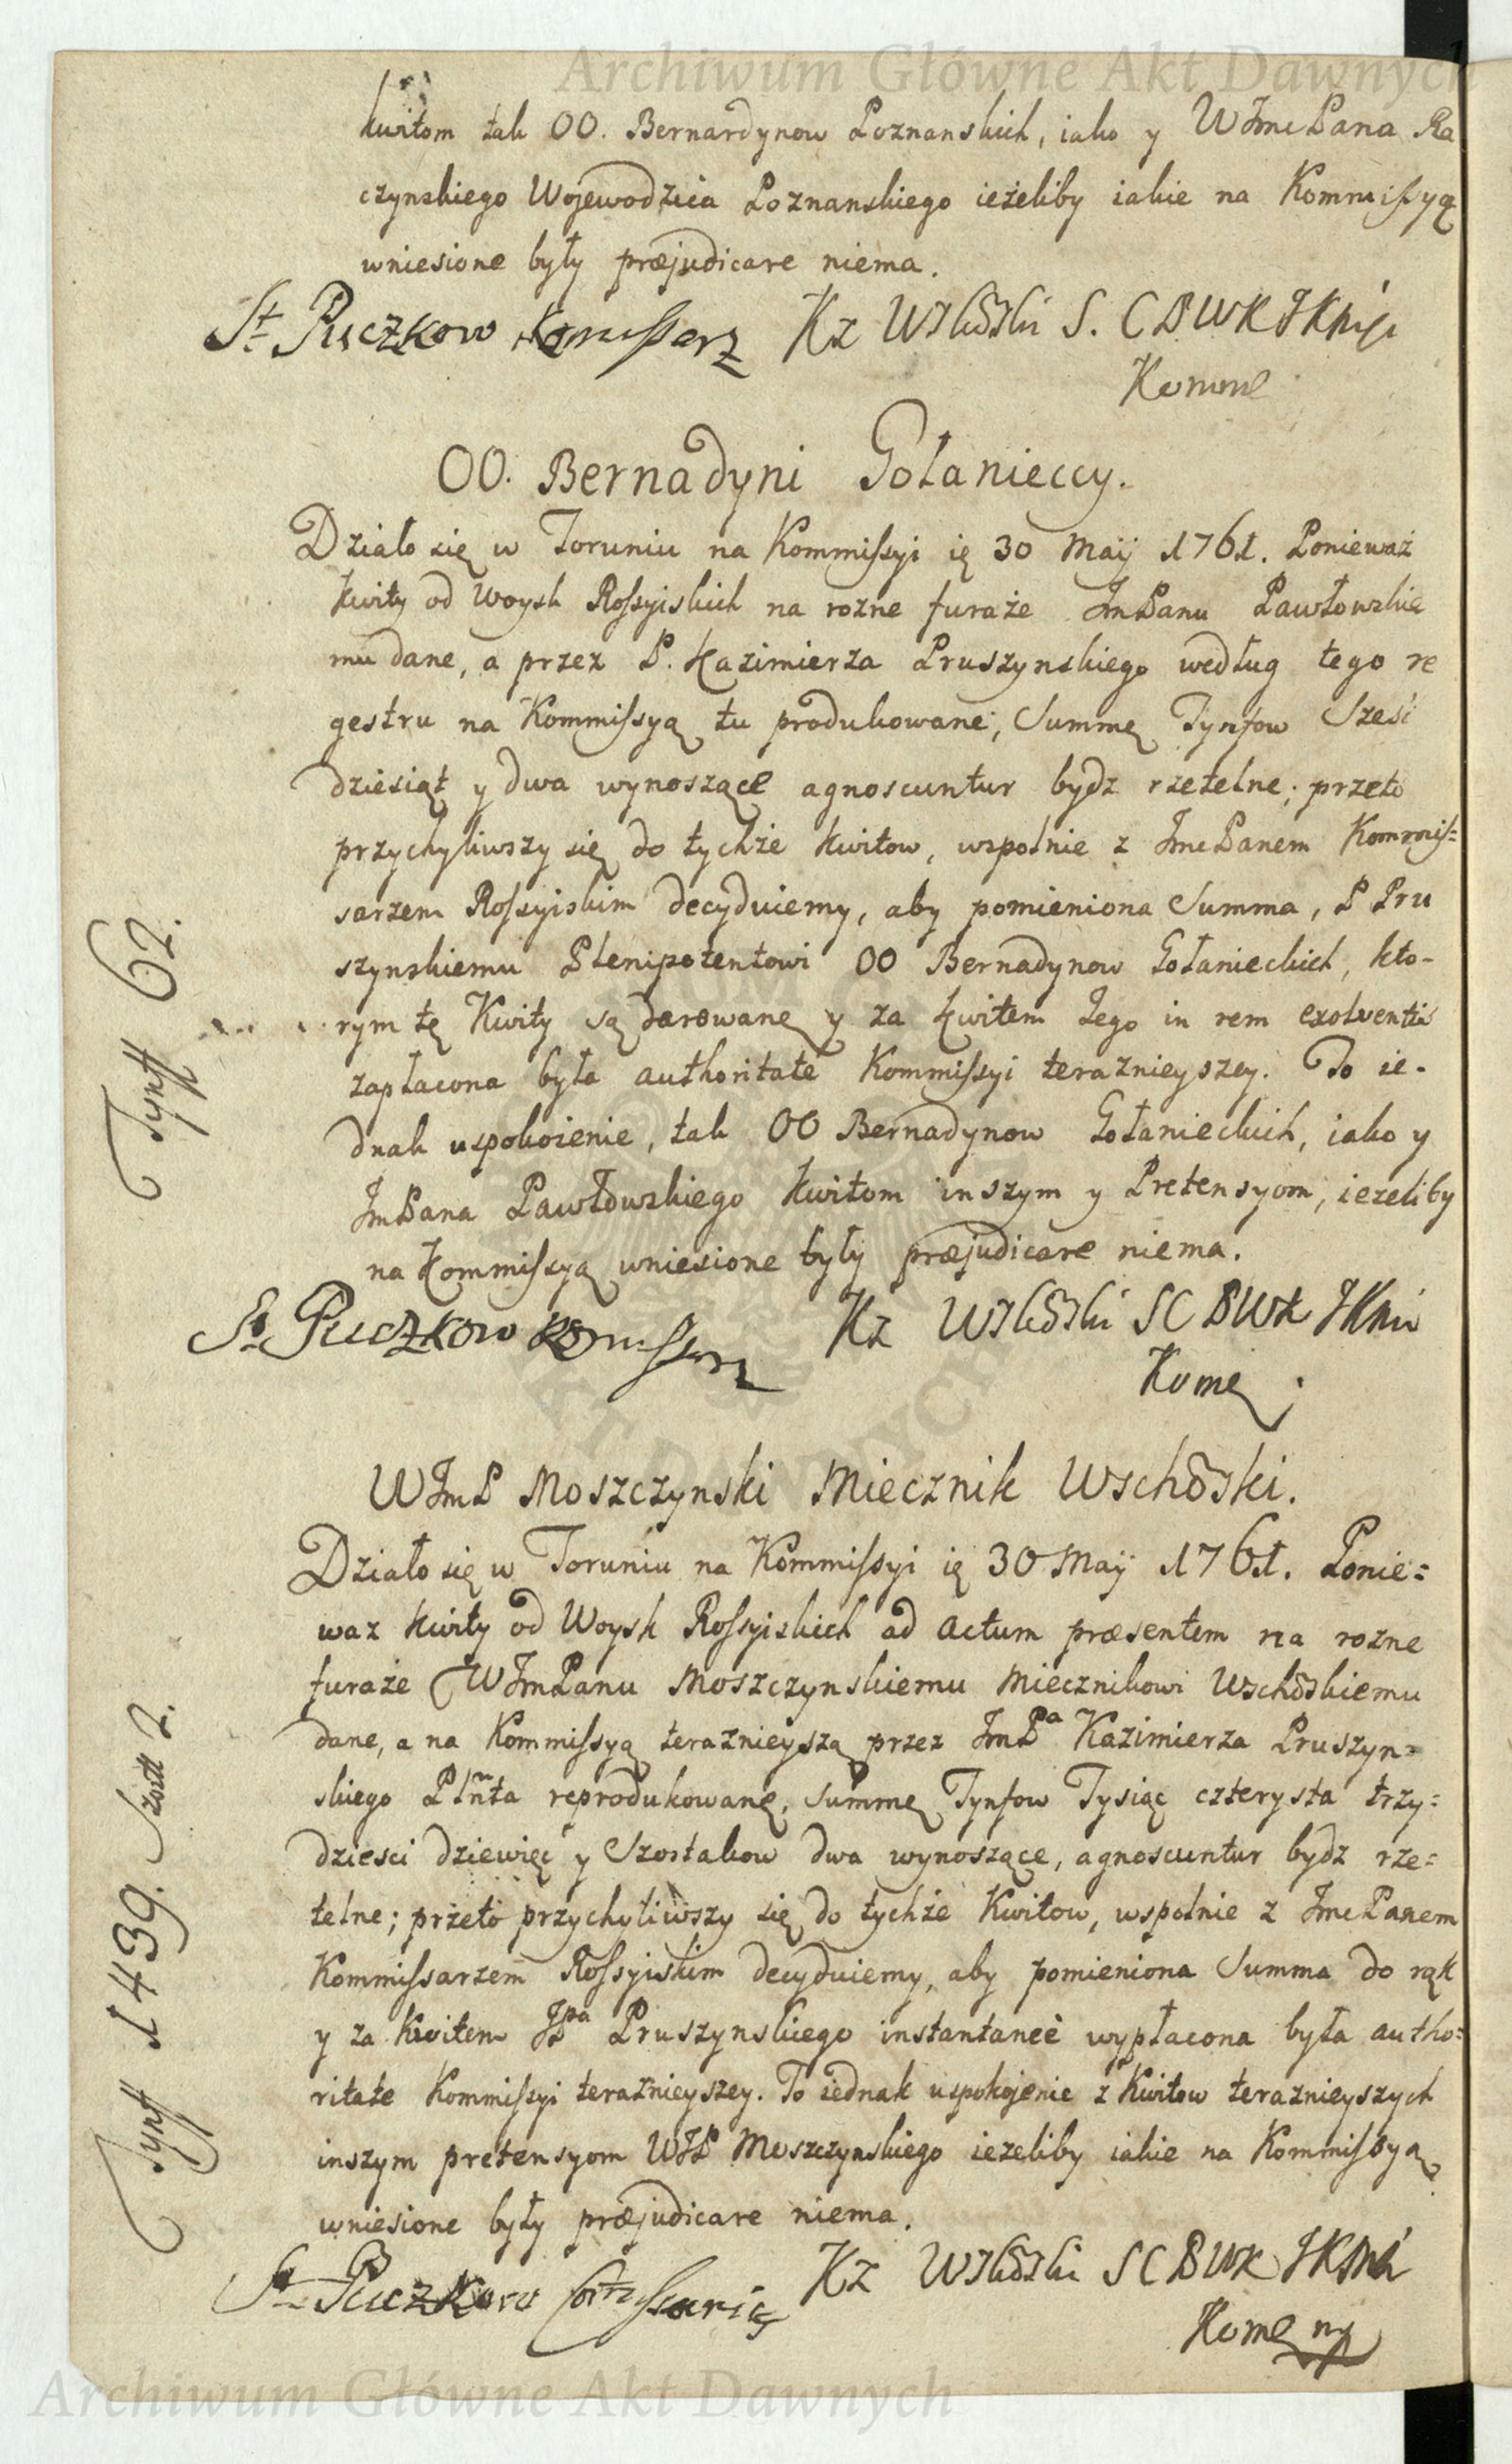 Archiwum Główne Akt Dawnych
kwitom tak OO. Bernardynow Poznanskich, iako y WJmcPana Ra
czynskiego Wojewodzica Poznanskiego ieżeliby iakie na Kommissyą
wniesione były præjudicare niema.
St Puczkow Komissarz Kz Wschõski S. C B W K J K Mci
Komm
OO. Bernadyni Gołanieccy.
Działo się w Toruniu na Kommissyi ię 30 Maij 1761. Ponieważ
kwity od Woysk Rossyiskich na rozne furaże JmPanu Pawłowskie
mu dane, a przez P. Kazimierza Pruszynskiego według tego re
gestru na Kommissyą tu produkowane, Summę Tynfow Sześć
dziesiąt y dwa wynoszące agnoscuntur bydz rzetelne; przeto
przychyliwszy się do tychże kwitow, wspolnie z JmcPanem Kommis=
sarzem Rossyiskim decyduiemy, aby pomieniona Summa, P Pru
szynskiemu Plenipotentowi OO Bernadynow Gołanieckich, kto-
rym tę Kwity są darowanę y za kwitem Jego in rem
zapłacona była authoritate Kommissyi teraznieyszey. To ie-
dnak uspokoienie, tak OO Bernadynow Gołanieckich, iako y
JmPana Pawłowskiego kwitom inszym y Pretensyom, ieżeliby
na Kommissyą wniesione były præjudicare niema.
St Puczkow Komissarz Kz Wschõski S C B W K J K Mci
Komę
Tynff 62.
WJmP Moszczynski Miecznik Wschõski.
Działo się w Toruniu na Kommissyi ię 30 Maij 1761. Ponie=
waz kwity od Woysk Rossyiskich ad actum præsentem na rozne
furaże WJmPanu Moszczynskiemu Miecznikowi Wschõskiemu
dane, a na Kommissyą teraznieyszą przez JmPa Kazimierza Pruszyn=
skiego Plñta reprodukowanę, Summę Tynfow Tysiąc czterysta trzy=
dziesci dziewięć y Szostakow dwa wynoszące, agnoscuntur bydz rze=
telne; przeto przychyliwszy się do tychże Kwitow, wspolnie z JmcPanem
Kommissarzem Rossyiskim decyduiemy, aby pomieniona Summa do rąk
y za Kwitem JPa Pruszynskiego instantaneè wypłacona była autho=
ritate Kommissyi teraznieyszey. To iednak uspokojenie z Kwitow teraznieyszych
inszym pretensyom WJP Moszczynskiego ieżeliby iakie na Kommissyą
wniesione były præjudicare niema.
St Puczkow Kz Wschõski S C B W K J K Mci
Komę
Tynff 1439. Szost 2.
Archiwum Główne Akt Dawnych